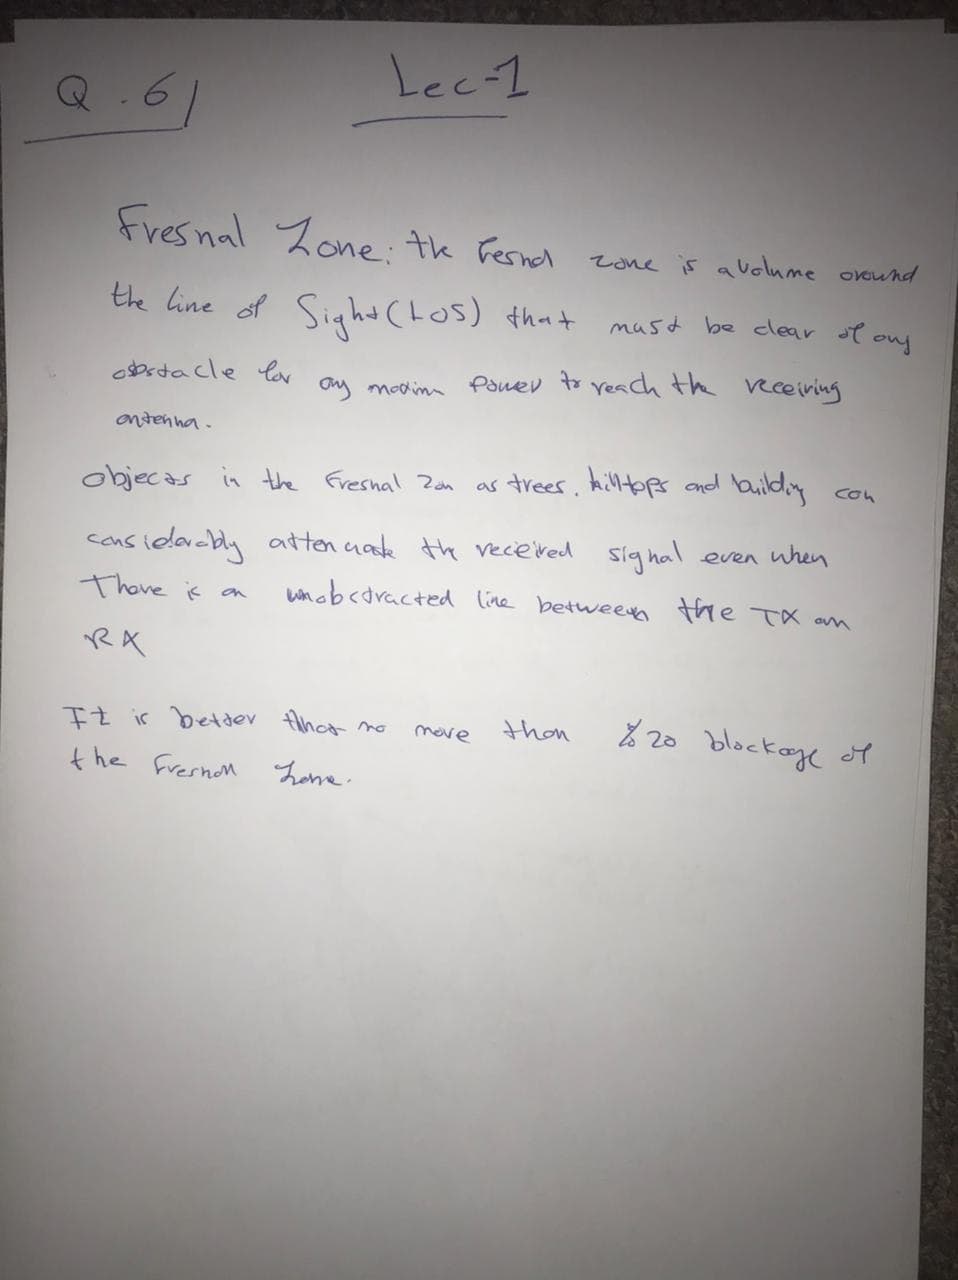 Q.6/ Lec-1
Fresnal Zone: the Fresnal zone is a volume around
the line of Sight (LOS) that must be clear of any
obstacle for any maxim power to reach the receiving
antenna.
objects in the Fresnal Zon as trees, hilltops and building can
considerably attenuate the received signal even when
There is an unobstracted line between the TX an
RX
It is better that no more than %20 blockage of
the Fresnal Zone.